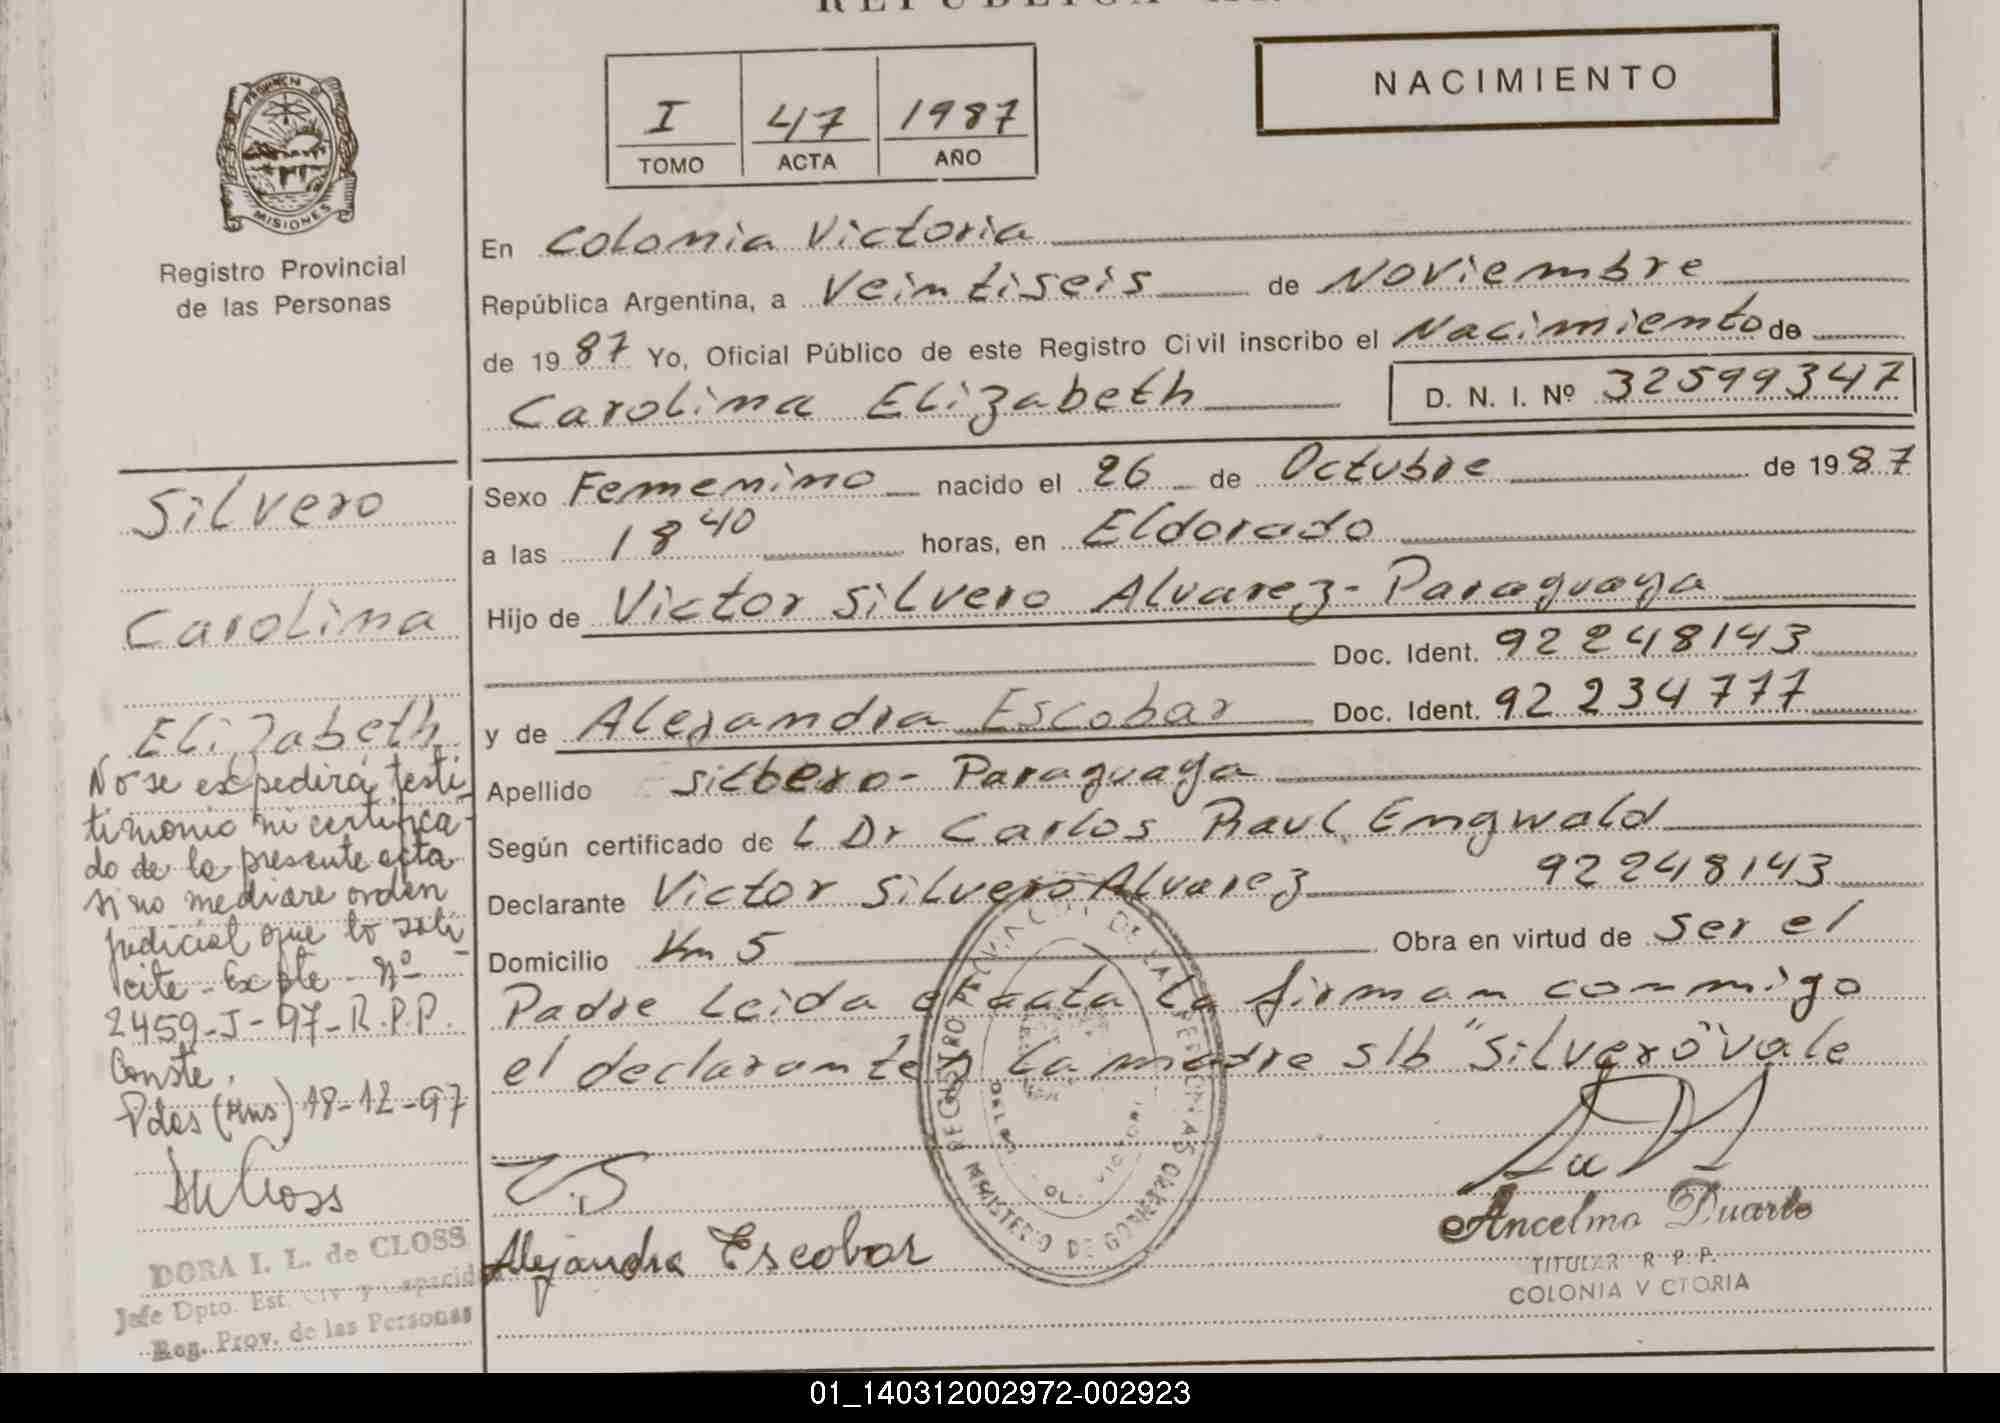 NACIMIENTO
I 47 1987
TOMO ACTA AÑO
PROVINCIA D
MISIONES
Registro Provincial
de las Personas
En Colonia Victoria
República Argentina, a Veintiseis de Noviembre
de 1987 Yo, Oficial Público de este Registro Civil inscribo el Nacimiento de
Carolina Elizabeth D. N. I. Nº 32599347
Sexo Femenino nacido el 26 de Octubre de 1987
a las 18 40 horas, en Eldorado
Hijo de Victor Silvero Alvarez - Paraguaya
Doc. Ident. 92248143
y de Alejandra Escobar Doc. Ident. 92234777
Apellido Silbero - Paraguaya
Según certificado de L Dr Carlos Raul Engwald
Declarante Victor Silvero Alvarez 92248143
Domicilio Km 5 Obra en virtud de ser el
Padre Leida el acta la firman conmigo
el declarante y la madre s/b "Silvero" vale
Alejandra Escobar
Ancelmo Duarte
TITULAR R.P.P.
COLONIA V CTORIA
REGISTRO PROVINCIAL DE LAS PERSONAS
MINISTERIO DE GOBIERNO
Silvero
Carolina
Elizabeth
No se expedirá testi
timonio ni certifica-
do de la presente acta
si no mediare orden
judicial que lo soli-
cite - Expte - Nº
2459-J-97-R.P.P.
Conste.
Pdas (Mns) 18-12-97
DORA I. L. de CLOSS
Jefe Dpto. Est. Civ y Capacid
Reg. Prov. de las Personas
01_140312002972-002923